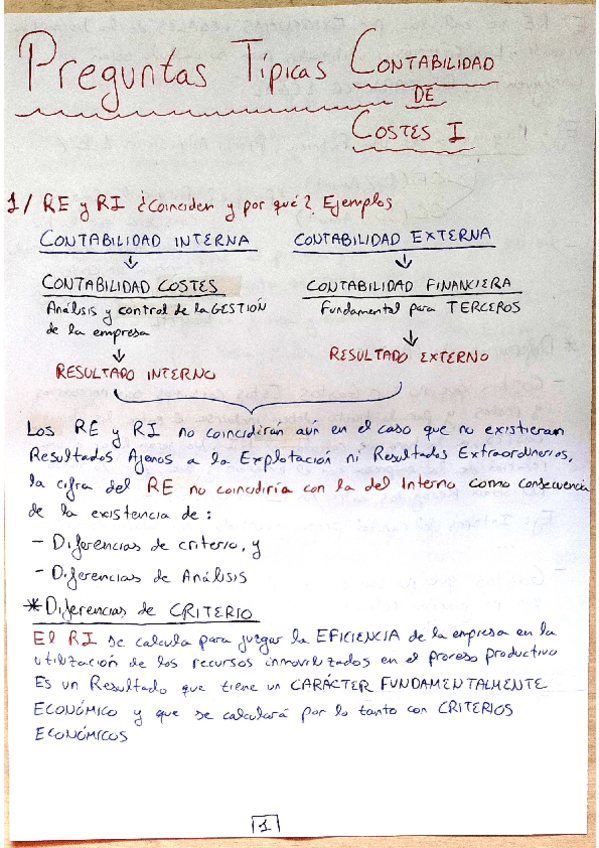 Preguntas Típicas CONTABILIDAD
DE
COSTES I
1/ RE y RI ¿Coinciden y por qué? Ejemplos
CONTABILIDAD INTERNA
CONTABILIDAD EXTERNA
CONTABILIDAD COSTES
CONTABILIDAD FINANCIERA
Análisis y control de la GESTIÓN
de la empresa
Fundamental para TERCEROS
RESULTADO INTERNO
RESULTADO EXTERNO
Los RE y RI no coincidirán aún en el caso que no existieran
Resultados Ajenos a la Explotación ni Resultados Extraordinarios,
la cifra del RE no coincidiría con la del Interno como consecuencia
de la existencia de:
- Diferencias de criterio, y
- Diferencias de Análisis
*Diferencias de CRITERIO
El RI se calcula para juzgar la EFICIENCIA de la empresa en la
utilización de los recursos inmovilizados en el proceso productivo
Es un Resultado que tiene un CARÁCTER FUNDAMENTALMENTE
ECONÓMICO y que se calculará por lo tanto con CRITERIOS
ECONÓMICOS
1